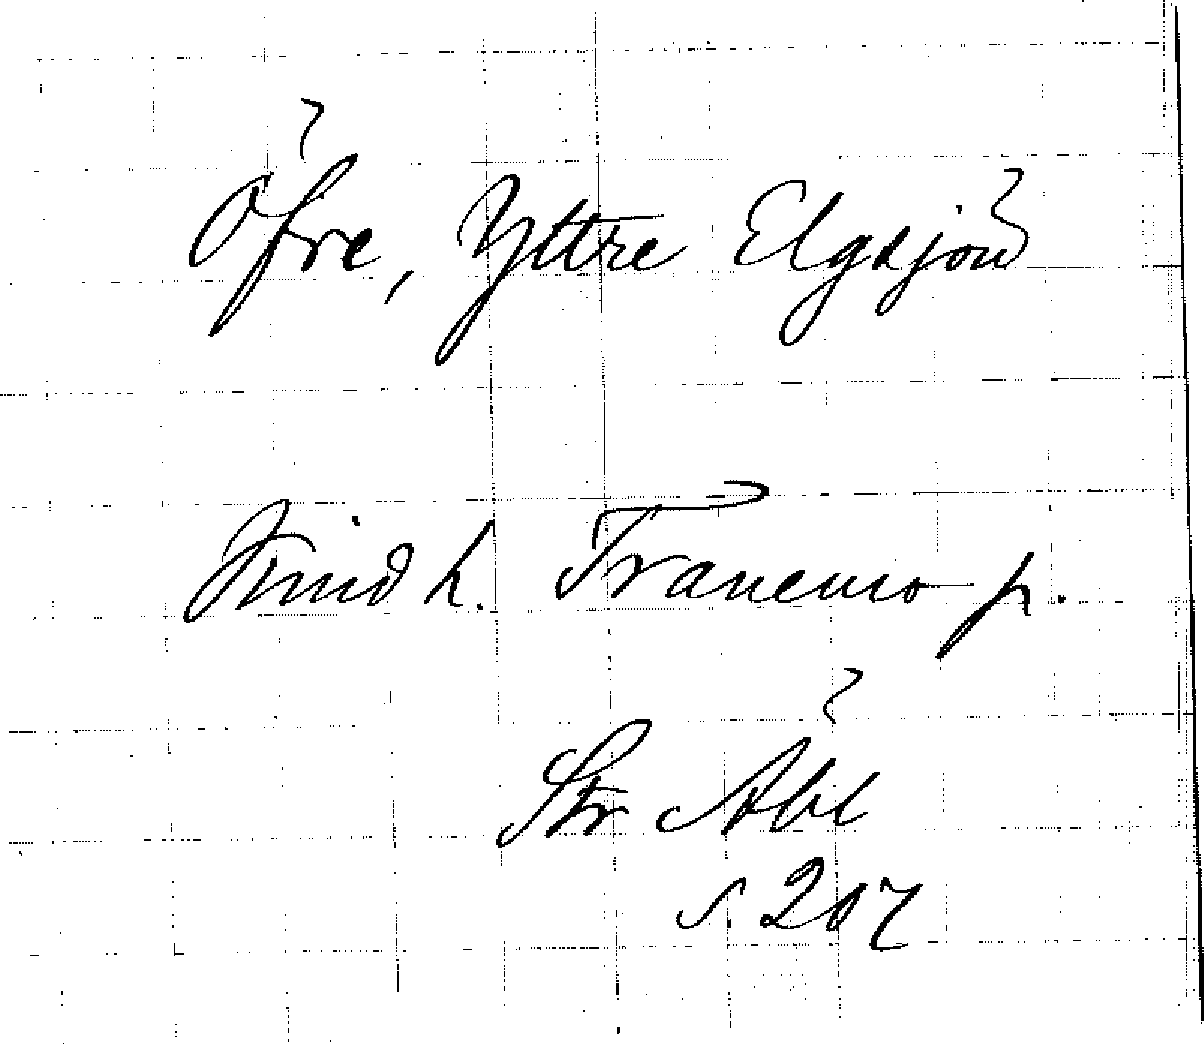 Öfre, Yttre Elgsjön
Kind h. Tranemo p.
Str Åbl
s. 207